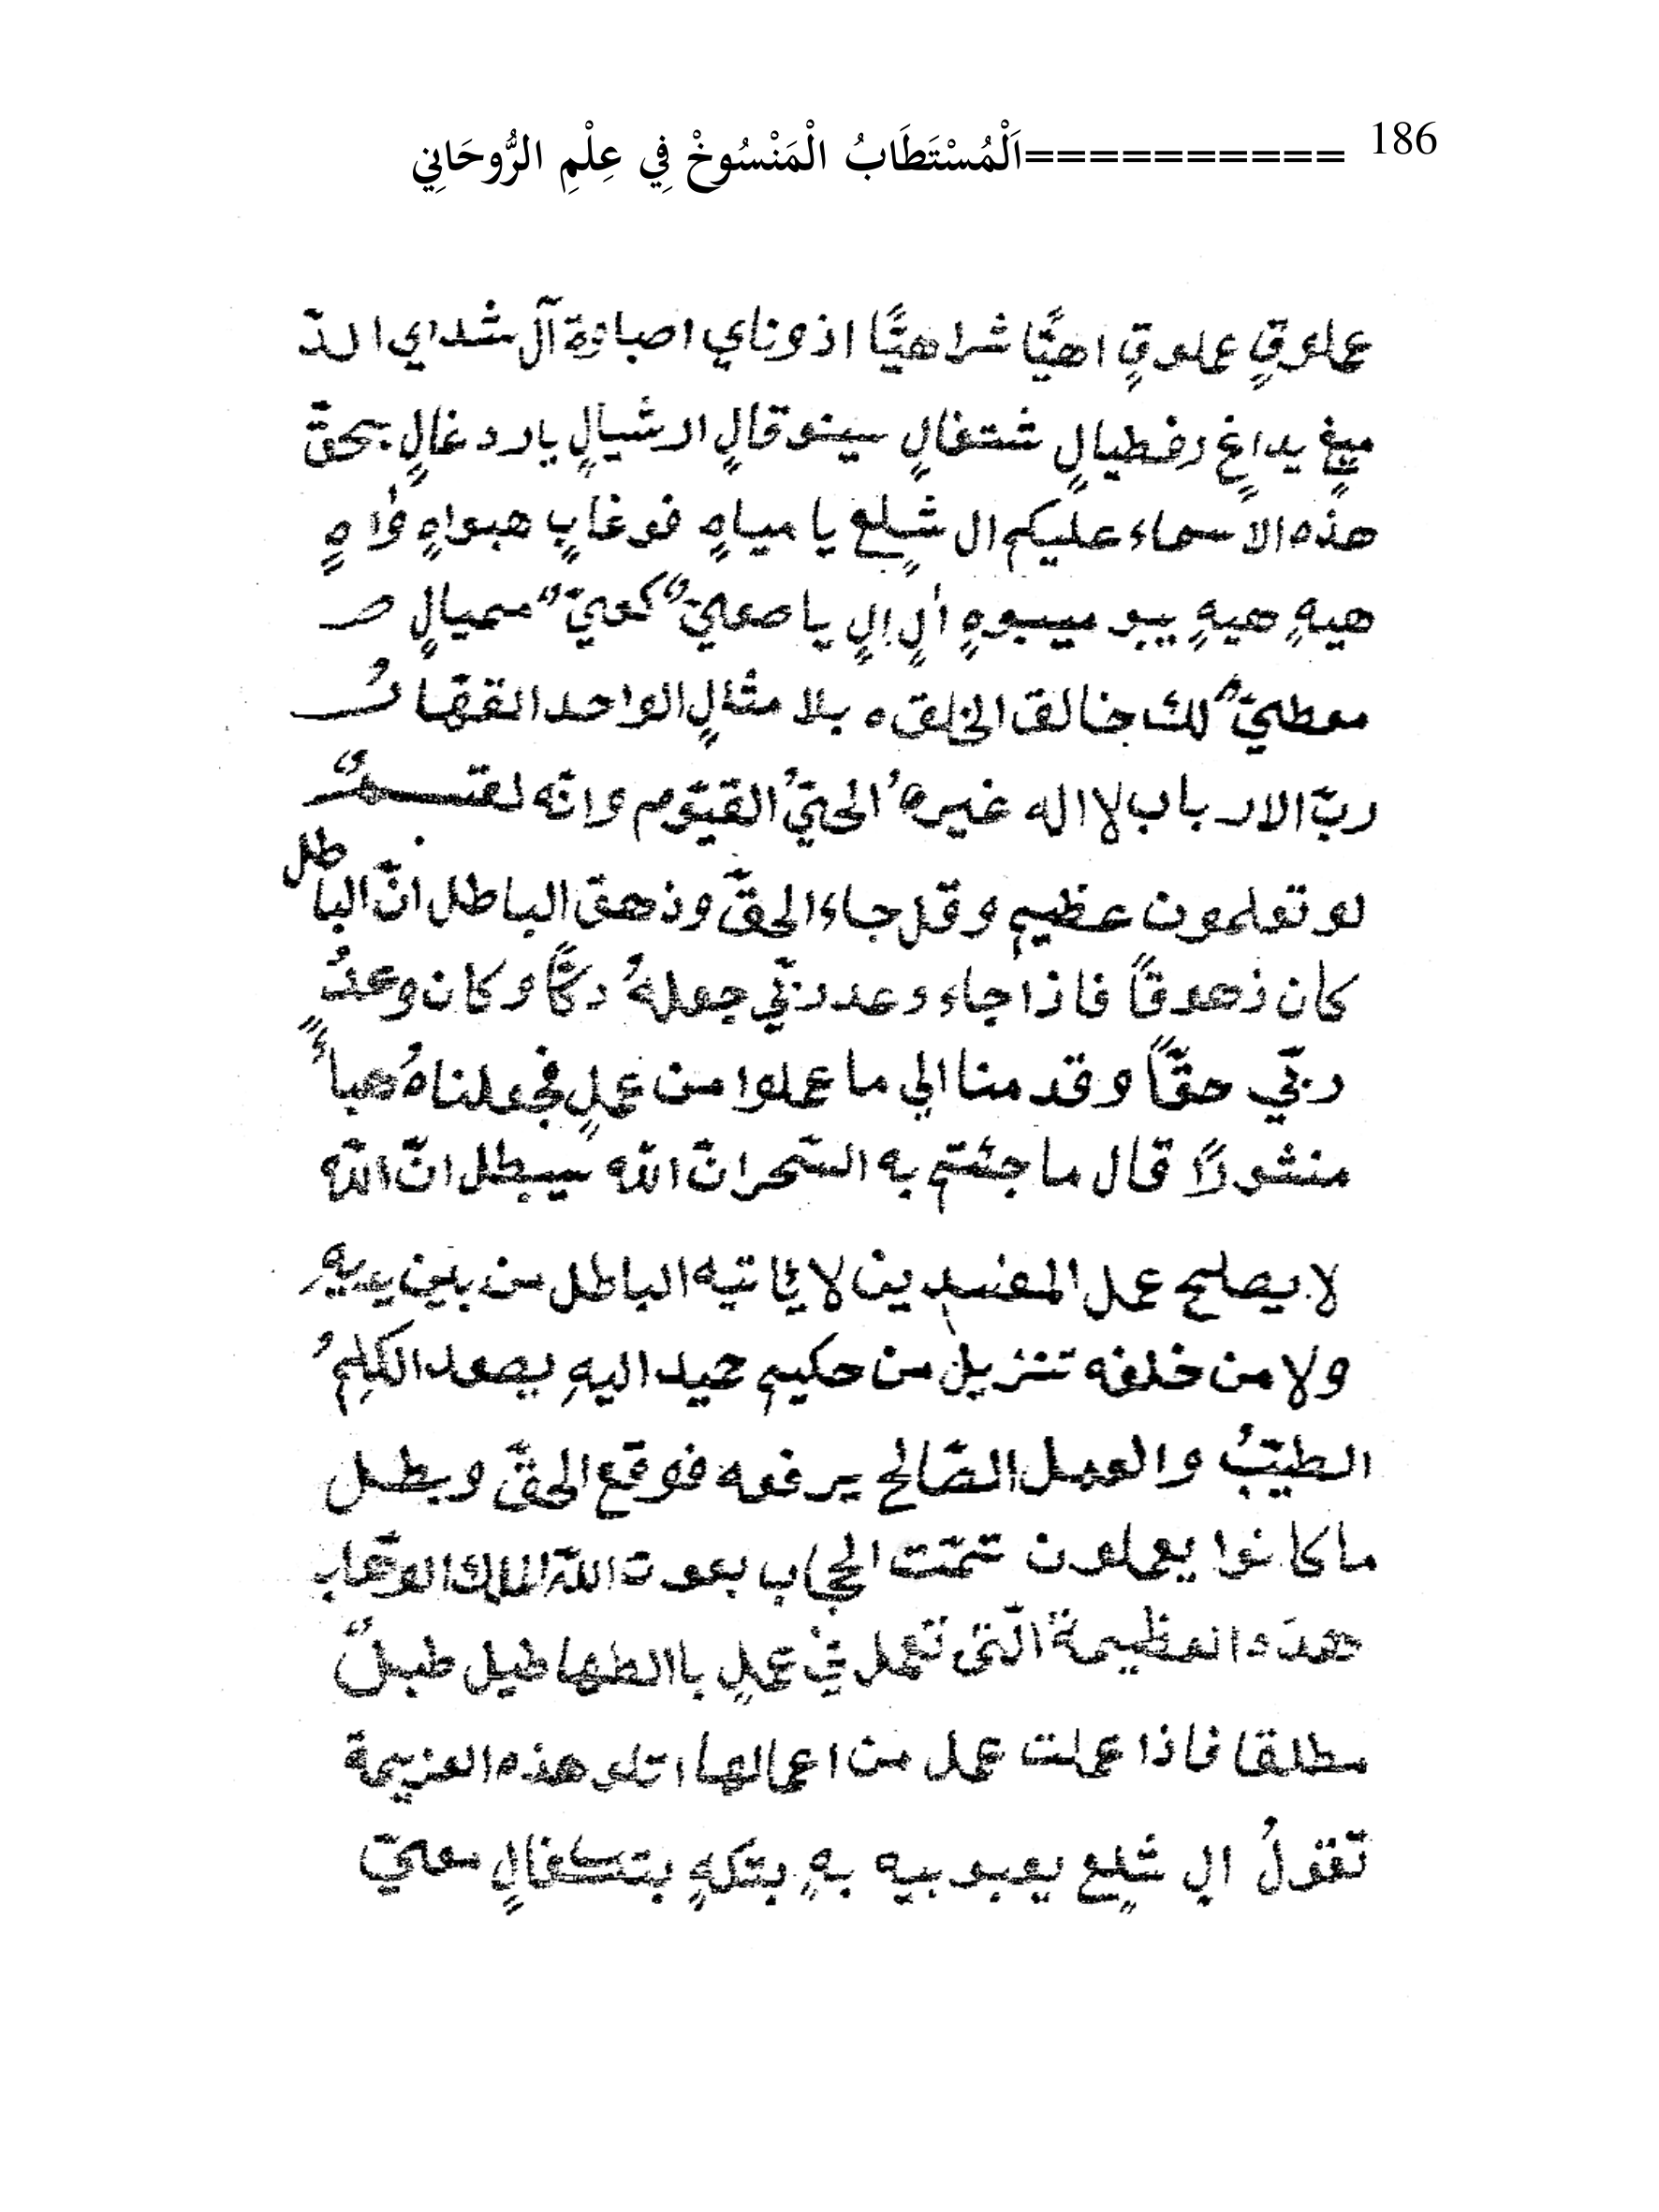 186 ==========اَلْمُسْتَطَابُ الْمَنْسُوخْ فِي عِلْمِ الرُّوحَانِي
عملوقٍ عملوقٍ اهيًّا شراهيًّا اذوناي اصباؤة آل شداي الدّ
ميغٍ يداغٍ رفطيالٍ شتغالٍ سينوقالٍ ارشيالٍ ياردغالٍ بحقّ
هذه الاسماء عليكم ال شلعٍ يا مياهٍ فوغابٍ هبواهٍ واهٍ
هيهٍ هيهٍ يبو ميسبوهٍ الٍ الٍ يا صعيٌّ كعيٌّ مميالٍ
معطيٌّ لك خالق الخلقه بلا مثالٍ الواحد القهّارُ
ربّ الارباب لا اله غيرهُ الحيُّ القيّوم وانّه لقسمٌ
لو تعلمون عظيم وقل جاء الحقّ وذهق الباطل انّ الباطل
كان ذهوقاً فاذا جاء وعد ربّي جعلهُ دكّاً وكان وعدُ
ربّي حقّاً وقدمنا الي ما عملوا من عملٍ فجعلناهُ هباءً
منثورًا قال ما جئتم به السّحر انّ الله سيبطل انّ الله
لا يصلح عمل المفسدين لا ئاتيه الباطل من بين يديهِ
ولا من خلفه تنزيل من حكيم حميد اليهِ يصعد الكلِمُ
الطيّبُ والعمل الصّالح يرفعه فوقع الحقّ وبطل
ما كانوا يعملون تمّت الحجاب بعوت اللّه الملك الوهّاب
هذه العظيمة الّتى تعمل في عملٍ باالطهاطيل طبلٌ
مطلقا فاذا عملت عمل من اعمالها اتلو هذه العزيمة
تقولُ ال شلعٍ يعبو بيه بهٍ بتكهٍ بتكفالٍ معيّ